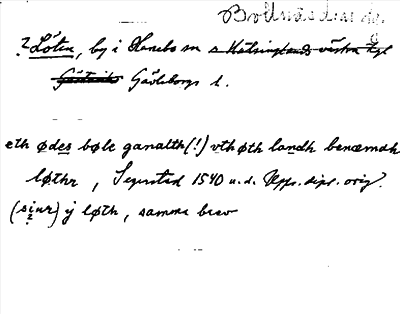 Bollnäs
? Lötin, by i Hanebo sn s Hälsinglands västra tgl
Gästrikl Gävleborgs l.
eth ødes bøle ganattth (!) vth øth landh benæmdh
løthr, Segersted 1540 u.d. Upps. dipl. orig.
(sinr) j løth, samma brev